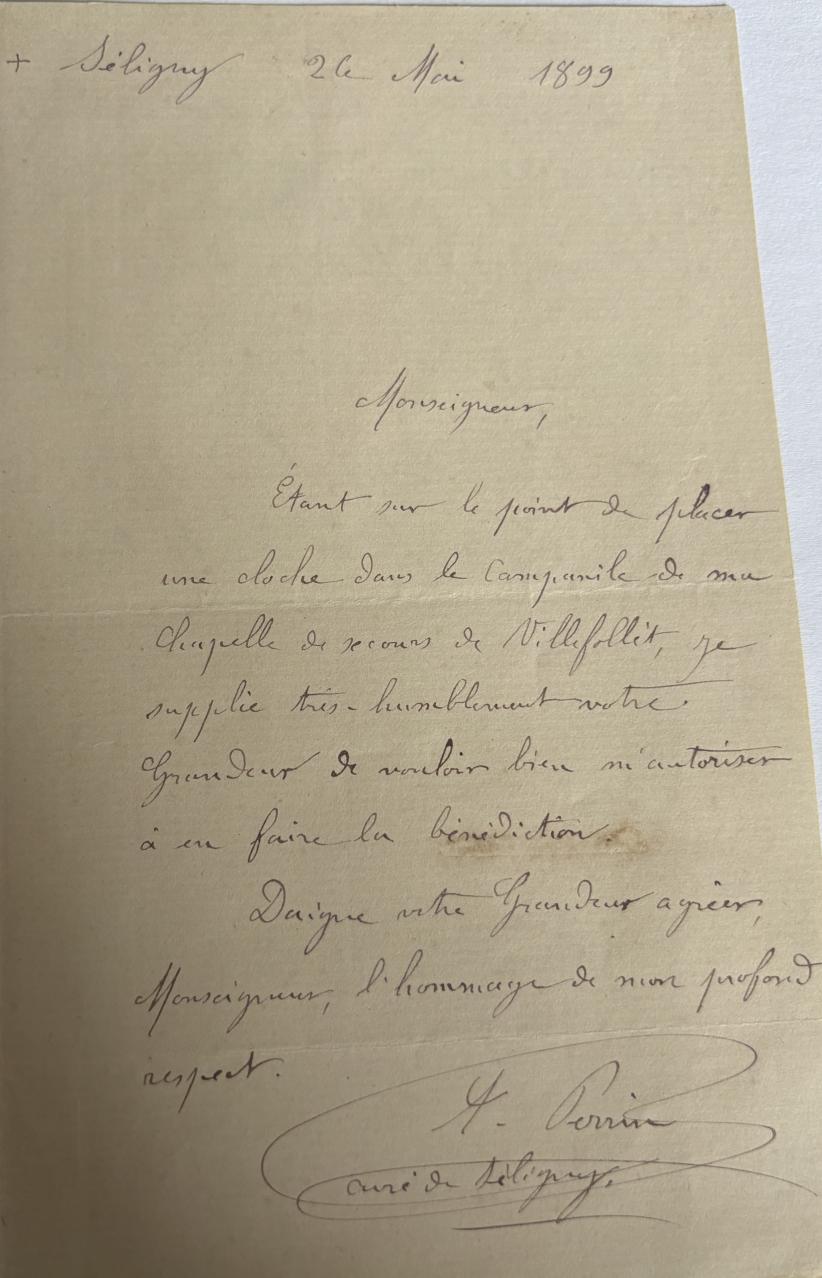 + Séligny 26 Mai 1899
Monseigneur,
Étant sur le point de placer
une cloche dans le Campanile de ma
Chapelle de secours de Villefollet, je
supplie très-humblement votre
Grandeur de vouloir bien m'autoriser
à en faire la bénédiction.
Daigne votre Grandeur agréer,
Monseigneur, l'hommage de mon profond
respect.
A. Perrin
curé de Séligny.